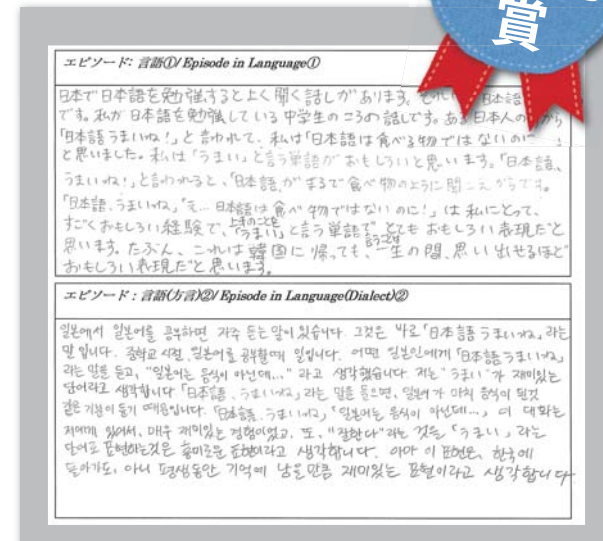 賞
エピソード: 言語①/ Episode in Language①
日本で日本語を勉強するとよく聞く話しがあります。それは 日本語
です。私が日本語を勉強している中学生のころの話しです。ある日本人の から
「日本語うまいね!」と言われて、私は「日本語は食べる物ではないのに
と思いました。私は「うまい」と言う単語がおもしろいと思います。「日本語、
うまいね!」と言われると、「日本語」がまるで食べ物のように聞こえからです。
「日本語、うまいね」「え… 日本語は食べ物ではないのに!」は私にとって、
すごくおもしろい経験で、上手のことを「うまい」と言う単語で、とてもおもしろい表現だと
思います。たぶん、これは韓国に帰っても、一生の間、思い出せるほど
おもしろい表現だと思います。
エピソード : 言語(方言)②/ Episode in Language(Dialect)②
일본에서 일본어를 공부하면 자주 듣는 말이 있습니다. 그것은 바로「日本語うまいね」라는
말입니다. 중학교 시절, 일본어를 공부할때 일입니다. 어떤 일본인에게「日本語うまいね」
라는 말을 듣고, "일본어는 음식이 아닌데..." 라고 생각했습니다. 저는 "うまい"가 재미있는
단어라고 생각합니다.「日本語、うまいね」라는 말을 들으면, 일본어가 마치 음식이 된것
같은 기분이 들기 때문입니다.「日本語、うまいね」「일본어는 음식이 아닌데...」이 대화는
저에게 있어서, 매우 재미있는 경험이었고, 또, "잘한다"라는 것을「うまい」라는
단어로 표현하는것은 흥미로운 표현이라고 생각합니다. 아마 이 표현은, 한국에
돌아가도, 아니 평생동안 기억에 남을만큼 재미있는 표현이라고 생각합니다